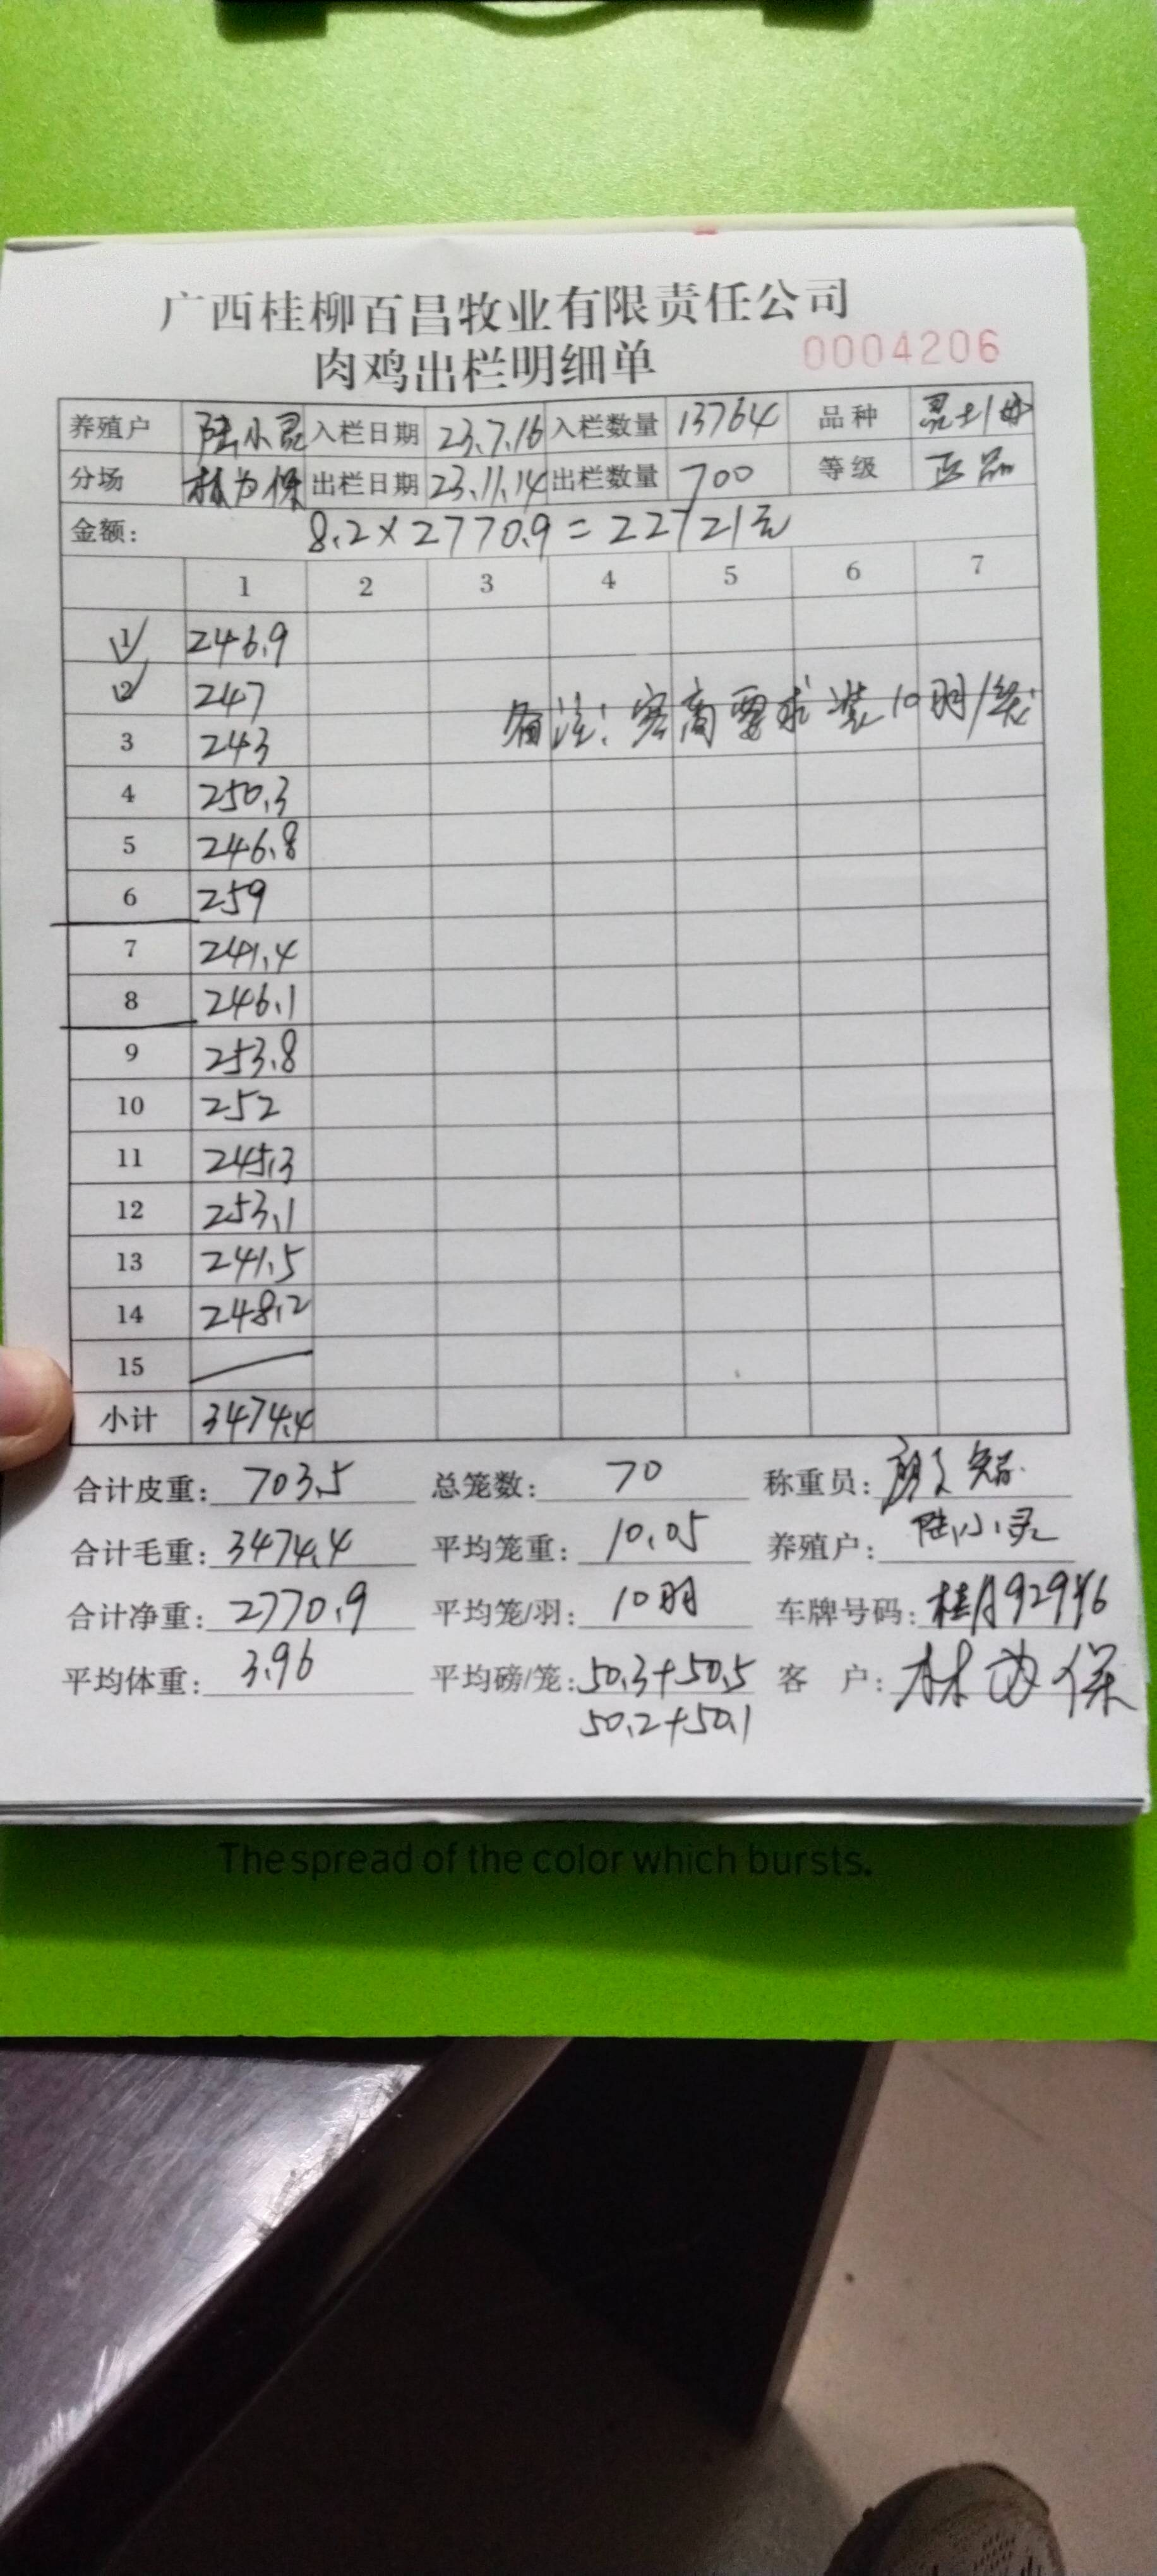 广西桂柳百昌牧业有限责任公司
肉鸡出栏明细单 0004206
养殖户 陆小灵 入栏日期 23.7.16 入栏数量 13764 品种
分场 林为保 出栏日期 23.11.14 出栏数量 700 等级 正品
金额: 8.2×2770.9=22721元
1 2 3 4 5 6 7
1 246.9
2 247
备注: 客商要求装10羽/笼
3 243
4 250.3
5 246.8
6 259
7 241.4
8 246.1
9 253.8
10 252
11 245.3
12 253.1
13 241.5
14 248.2
15
小计 3474.4
合计皮重: 703.5 总笼数: 70 称重员:
合计毛重: 3474.4 平均笼重: 10.05 养殖户: 陆小灵
合计净重: 2770.9 平均笼/羽: 10羽 车牌号码:
平均体重: 3.96 平均磅/笼: 50.3+50.5 客户: 林为保
50.2+50.1
The spread of the color which bursts.